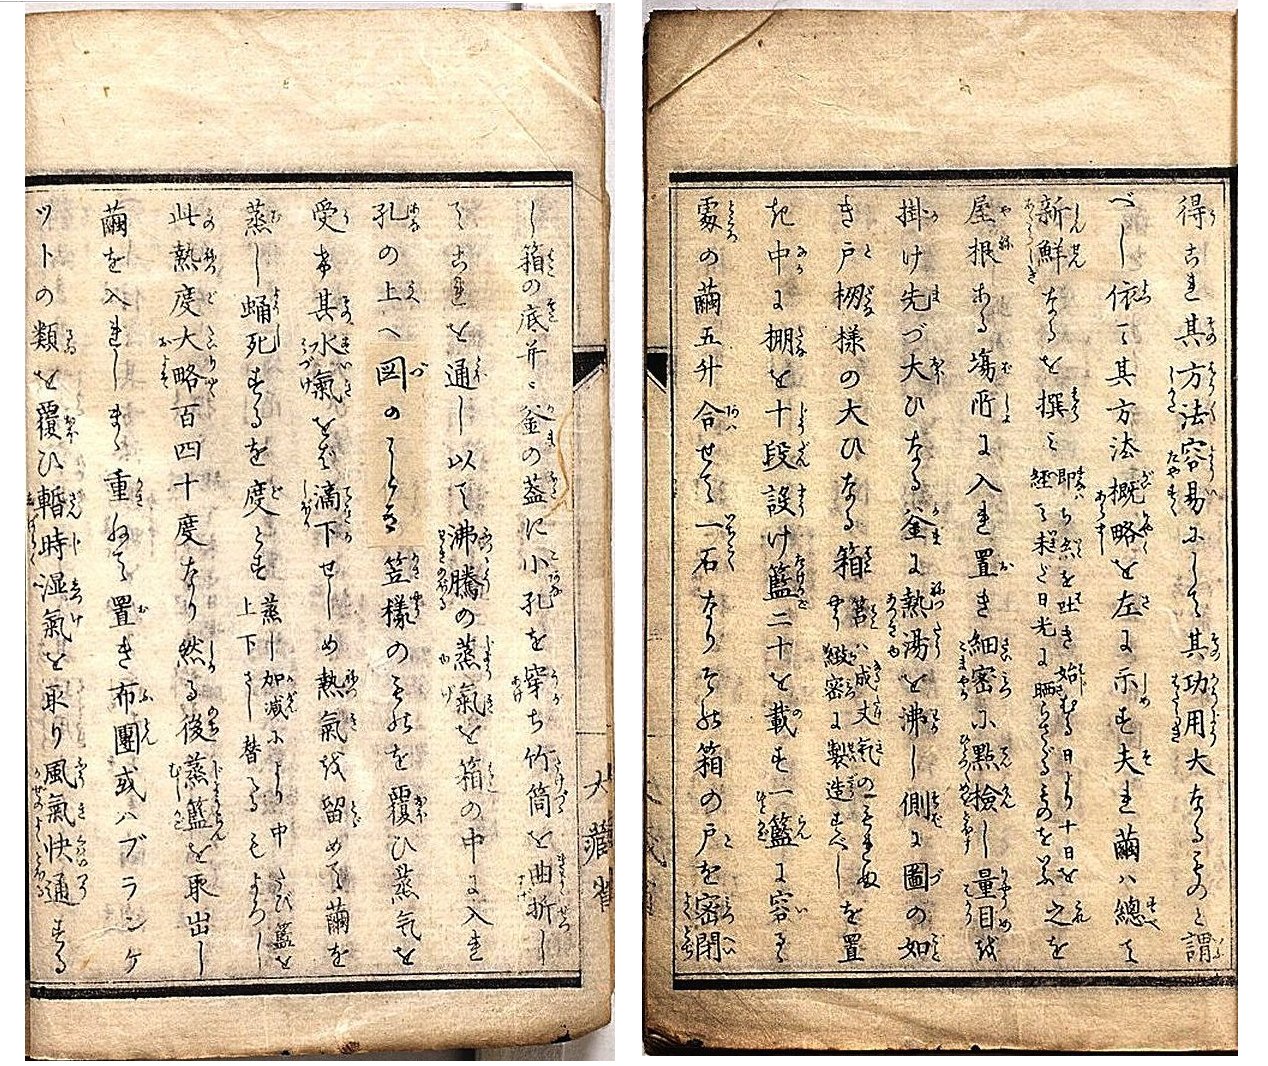 得これ其方法容易にして其功用大なるものと謂
べし依て其方法概略を左に示す夫れ繭ハ総て
新鮮なるを撰み即ち糸を吐き始むる日より十日を経て未だ日光に晒らさゞるものを云ふ之を
屋根ある場所に入れ置き細密に點検し量目を
掛け先づ大ひなる釜に熱湯を沸し側に圖の如
き戸棚様の大ひなる箱 箱ハ成丈氣のもれぬやう緻密に製造すべし を置
き中に棚を十段設け籃二十を載す一籃に容る
處の繭五升合せて一石なり其箱の戸を密閉
し箱の底并に釜の蓋に小孔を穿ち竹筒を曲折し
てこれを通し以て沸騰の蒸氣を箱の中に入れ
孔の上へ図のことき笠様のものを覆ひ蒸気を
受け其水氣をば滴下せしめ熱氣を留めて繭を
蒸し蛹死するを度とす 蒸し加減により中たび籃を上下さし替るもよろし
此熱度大略百四十度なり然る後蒸籃を取出し
繭を入れしまゝ重ねて置き布團或ハブランケ
ットの類を覆ひ暫時湿氣を取り風氣快通する
大藏省